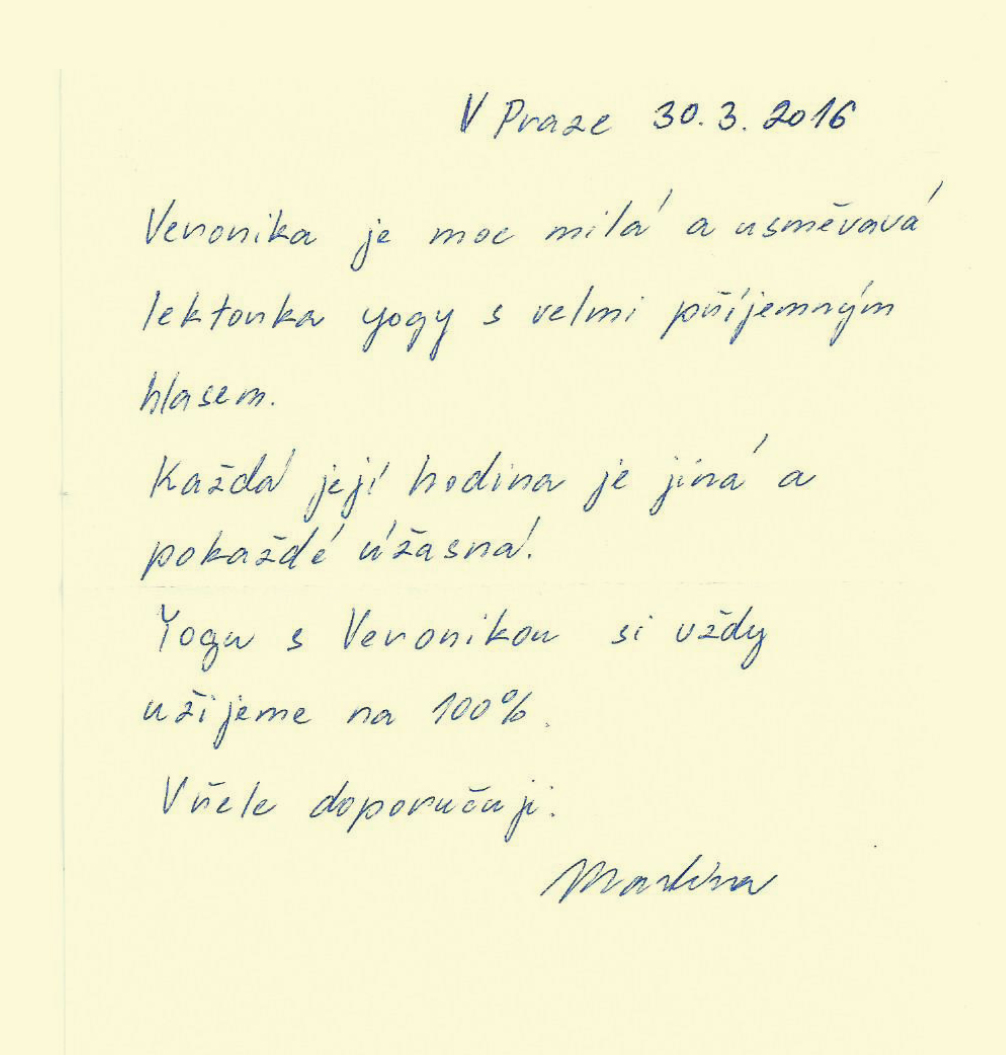 V Praze 30.3.2016
Veronika je moc milá a usměvavá
lektorka yogy s velmi příjemným
hlasem.
Každá její hodina je jiná a
pokaždé úžasná.
Yogu s Veronikou si vždy
užijeme na 100%.
Vřele doporučuji.
Martina